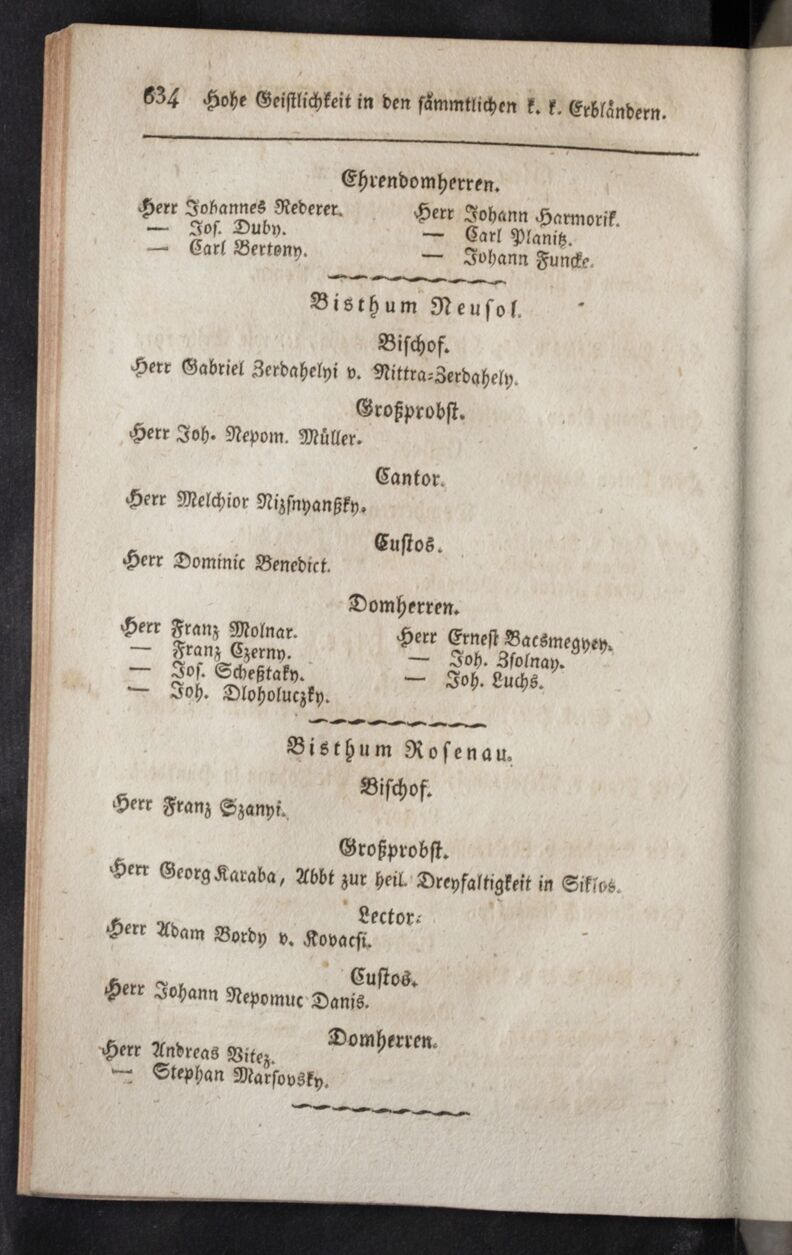 634 Hohe Geistlichkeit in den sämmtlichen k. k. Erbländern.
Ehrendomherren.
Herr Johannes Rederer.
— Jos. Duby.
— Carl Bertony.
Herr Johann Harmorik.
— Carl Planitz.
— Johann Funcke.
Bisthum Neusol.
Bischof.
Herr Gabriel Zerdahelyi v. Nittra-Zerdahely.
Großprobst.
Herr Joh. Nepom. Müller.
Cantor.
Herr Melchior Nizsnyanßky.
Custos.
Herr Dominic Benedict.
Domherren.
Herr Franz Molnar.
— Franz Czerny.
— Jos. Scheßtaky.
— Joh. Dloholuczky.
Herr Ernest Bacsmegyey.
— Joh. Zsolnay.
— Joh. Luchs.
Bisthum Rosenau.
Bischof.
Herr Franz Szanyi.
Großprobst.
Herr Georg Karaba, Abbt zur heil. Dreyfaltigkeit in Siklos.
Lector.
Herr Adam Bordy v. Kovacsi.
Custos.
Herr Johann Nepomuc Danis.
Domherren.
Herr Andreas Vitez.
— Stephan Marsovsky.